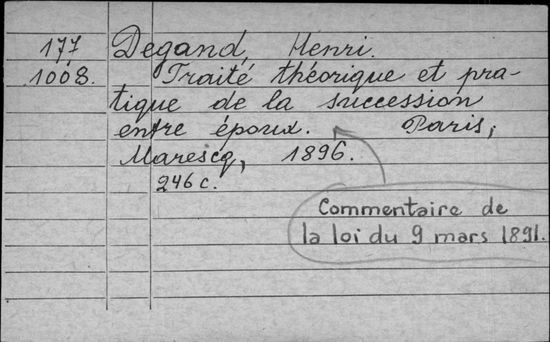 177 Degand, Henri.
1008. Traité théorique et pra-
tique de la succession
entre époux. Paris,
Marescq, 1896.
246 c.
Commentaire de
la loi du 9 mars 1891.